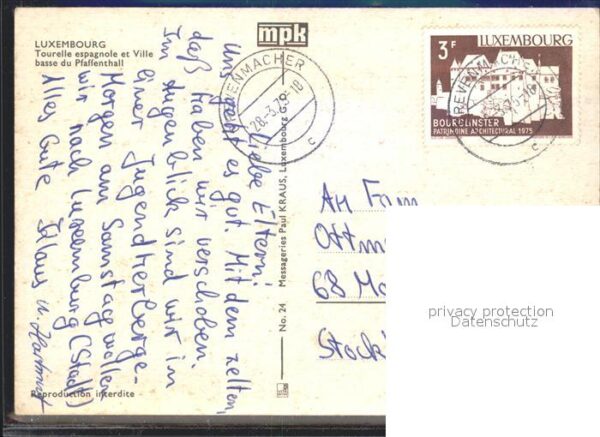 LUXEMBOURG
Tourelle espagnole et Ville
basse du Pfaffenthall
mpk
GREVENMACHER
28-3.78-18
c
3F LUXEMBOURG
GREVENMACHER
c
BOURGLINSTER
PATRIMOINE ARCHITECTURAL 1975
Liebe Eltern!
Uns geht es gut. Mit dem zelten,
daß haben wir verschoben.
Im Augenblick sind wir in
einer Jugendherberge.
Morgen am Samstag wollen
wir nach Luxemburg (Stadt)
Alles Gute Klaus u. Hartmut
No. 24 Messageries Paul KRAUS, Luxembourg G.D.
An Fam
Ottm
68 Ma
Stock
Reproduction interdite
privacy protection
Datenschutz